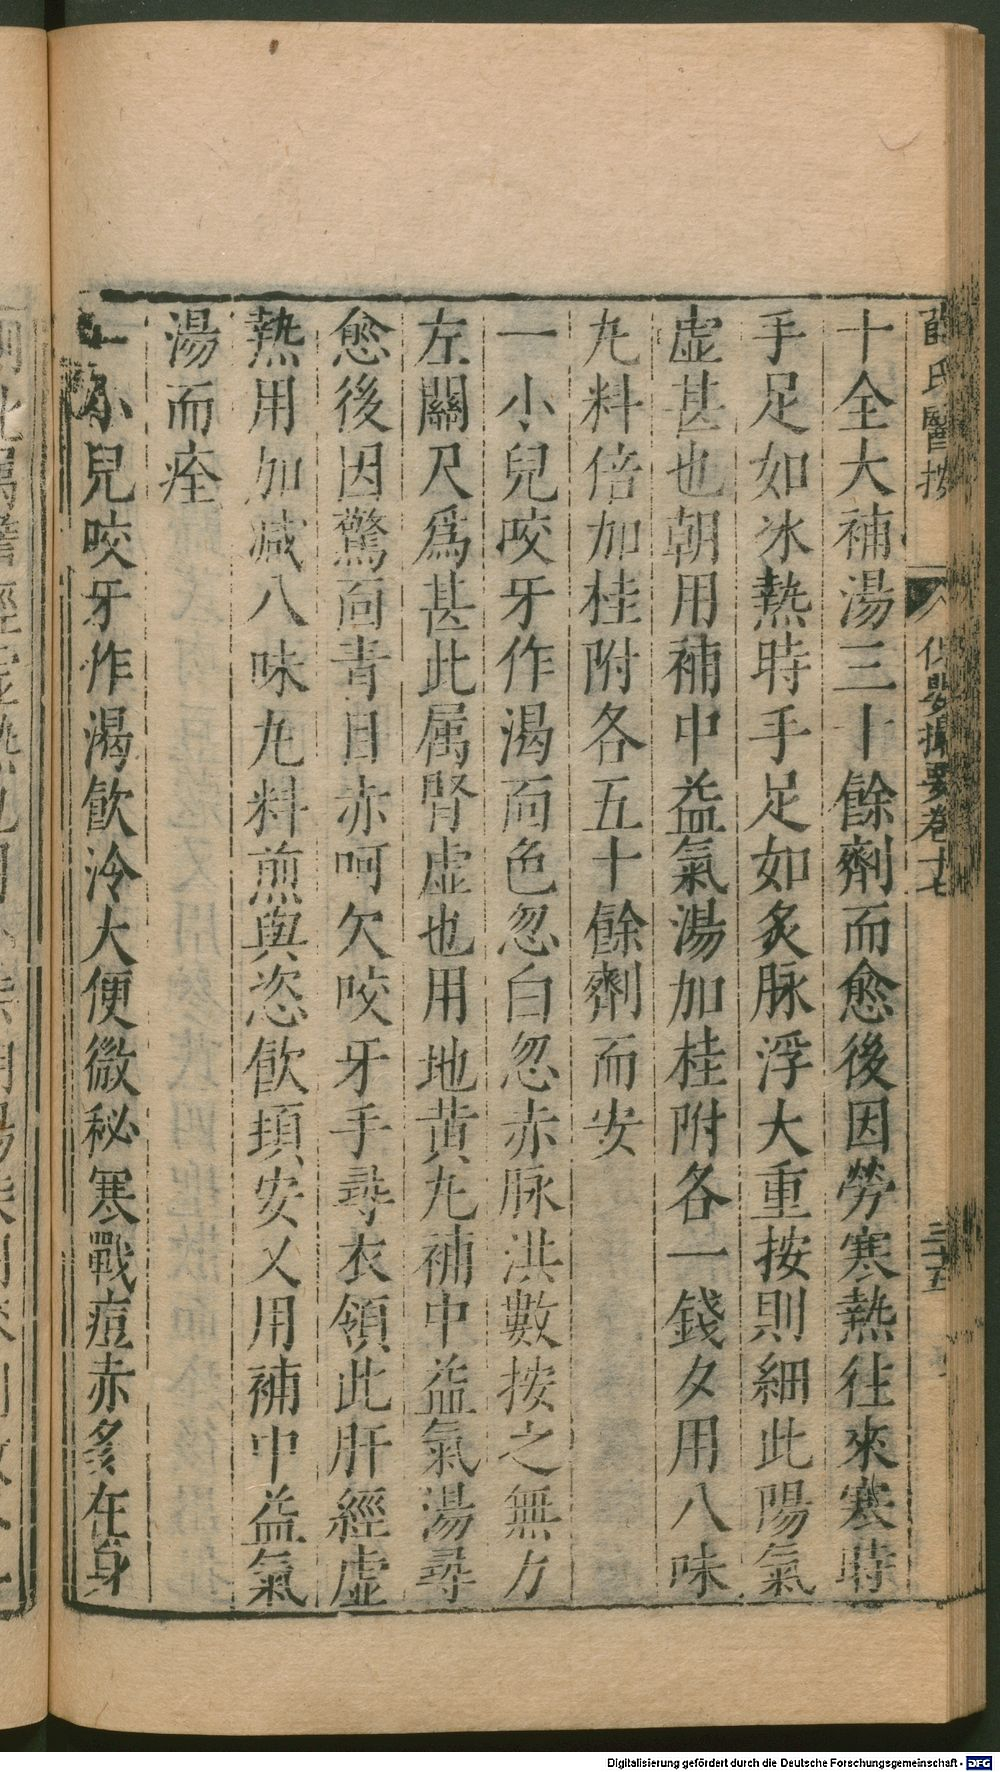 薛氏醫按 保嬰撮要卷十七 三十五
十全大補湯三十餘劑而愈後因勞寒熱往來寒時
手足如冰熱時手足如炙脉浮大重按則細此陽氣
虛甚也朝用補中益氣湯加桂附各一錢夕用八味
丸料倍加桂附各五十餘劑而安
一小兒咬牙作渴面色忽白忽赤脉洪數按之無力
左關尺爲甚此属腎虛也用地黄丸補中益氣湯尋
愈後因驚面青目赤呵欠咬牙手尋衣領此肝經虛
熱用加减八味丸料煎與恣飲頓安又用補中益氣
湯而痊
一小兒咬牙作渴飲冷大便微秘寒戰痘赤多在身
Digitalisierung gefördert durch die Deutsche Forschungsgemeinschaft - DFG